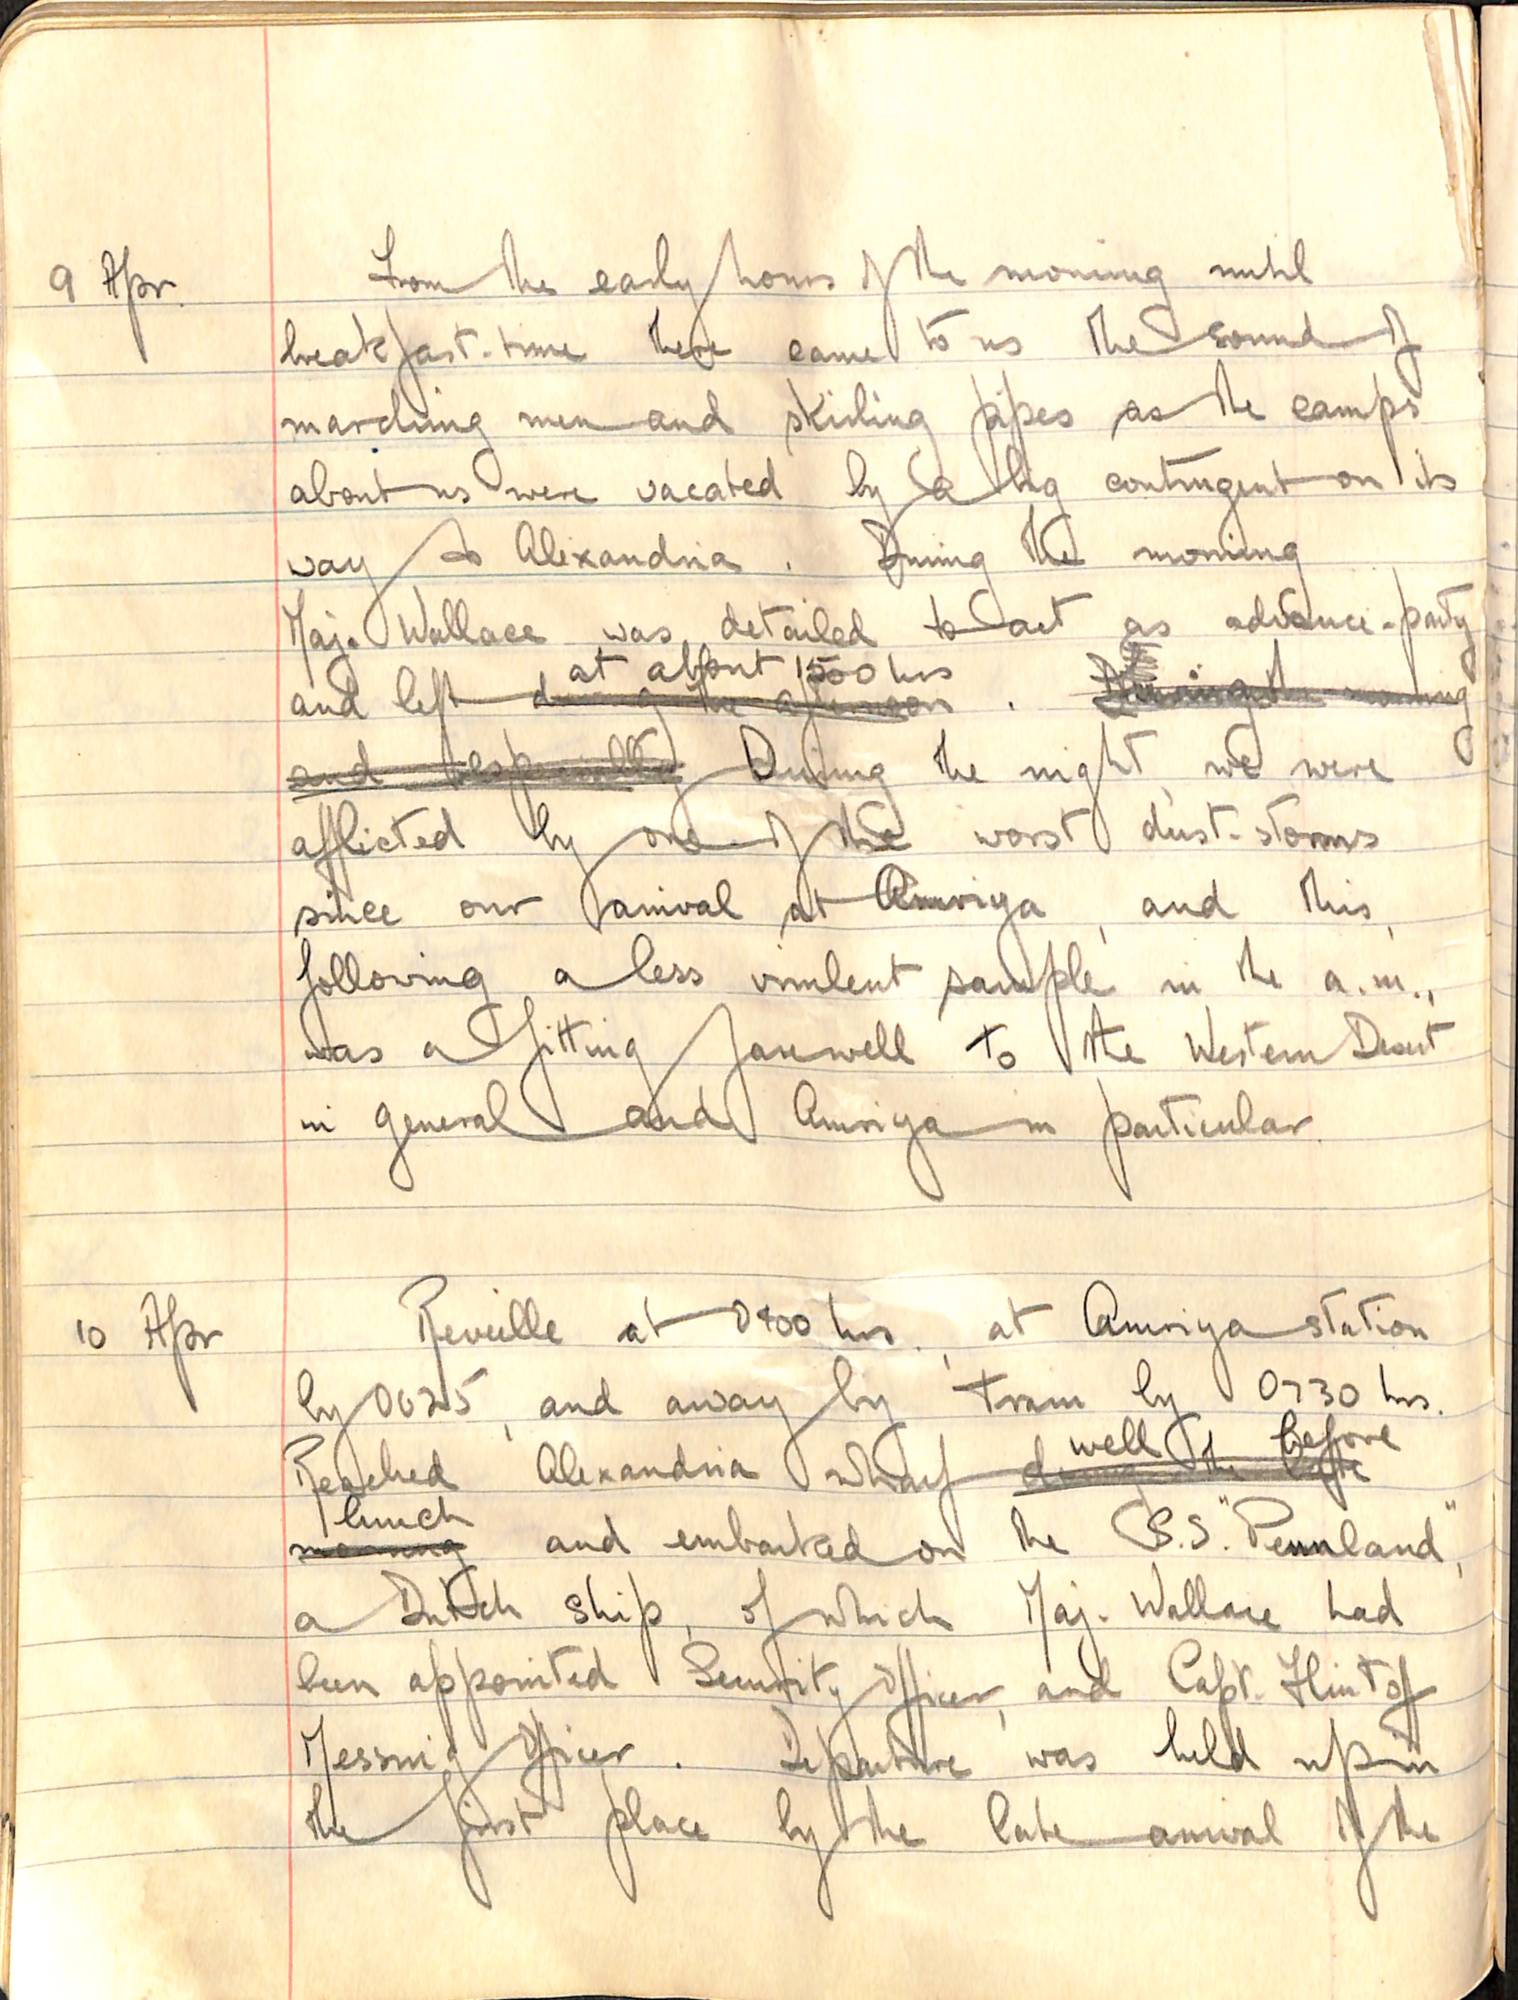 9 Apr. From the early hours of the morning until
breakfast-time there came to us the sound of
marching men and skirling pipes as the camps
about us were vacated by a big contingent on its
way to Alexandria. During the morning
Maj. Wallace was detailed to act as advance-party
at about 1500 hrs
and left during the afternoon. During the morning
and especially During the night, we were
afflicted by one of the worst dust-storms
since our arrival at Amriya, and this,
following a less virulent sample in the a.m.,
was a fitting farewell to the Western Desert
in general and Amriya in particular.
10 Apr Reveille at 0400 hrs., at Amriya station
by 0625, and away by train by 0730 hrs.
well before
Reached Alexandria wharf during the
lunch
morning and embarked on the S.S. "Pennland",
a Dutch ship, of which Maj. Wallace had
been appointed Security Officer, and Capt. Flintoff
Messing Officer. Departure was held up in
the first place by the late arrival of the